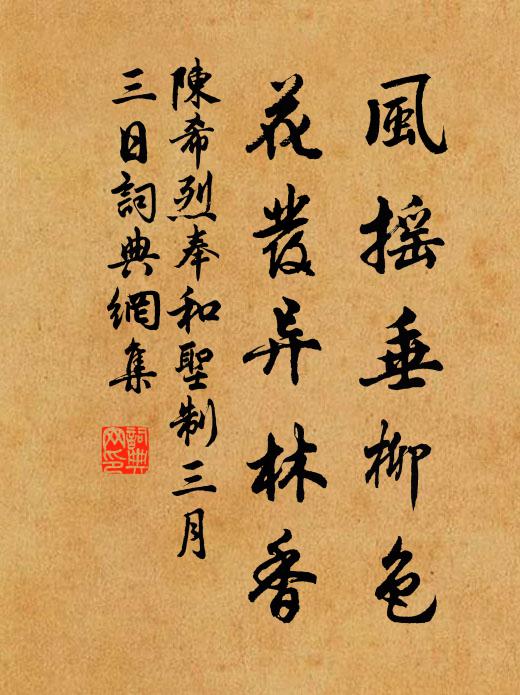 風摇垂柳色
花發异林香
陳希烈奉和聖制三月
三日詞典網集
詞典
网印